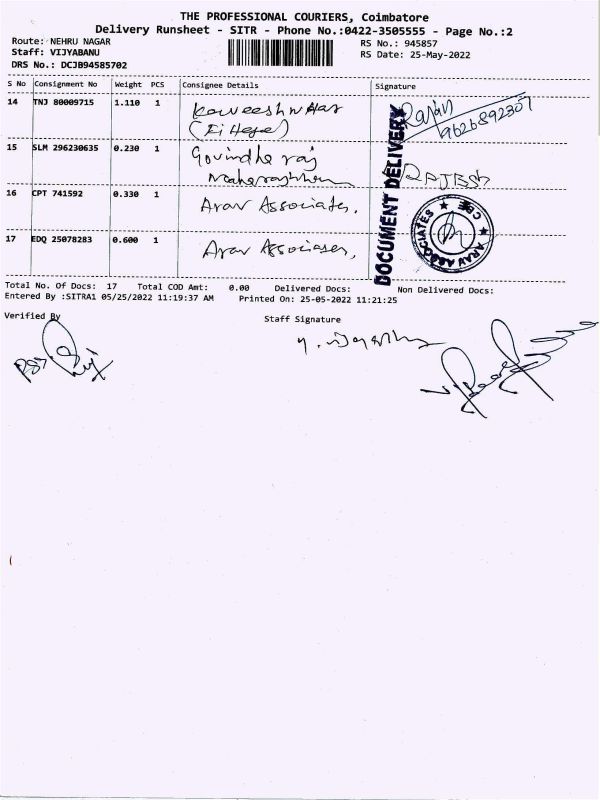 THE PROFESSIONAL COURIERS, Coimbatore
Delivery Runsheet - SITR - Phone No.:0422-3505555 - Page No.:2
Route: NEHRU NAGAR
RS No.: 945857
Staff: VIJYABANU
RS Date: 25-May-2022
DRS No.: DCJB94585702
S No Consignment No Weight PCS Consignee Details Signature
14 TNJ 80009715 1.110 1 Rajan
9626892307
15 SLM 296230635 0.230 1 Govindharaj RAJESH
16 CPT 741592 0.330 1 Arav Associates,
17 EDQ 25078283 0.600 1 Arav Associates,
DOCUMENT DELIVERY
ARAV ASSOCIATES ★ CBE ★
Total No. Of Docs: 17 Total COD Amt: 0.00 Delivered Docs: Non Delivered Docs:
Entered By :SITRA1 05/25/2022 11:19:37 AM Printed On: 25-05-2022 11:21:25
Verified By Staff Signature